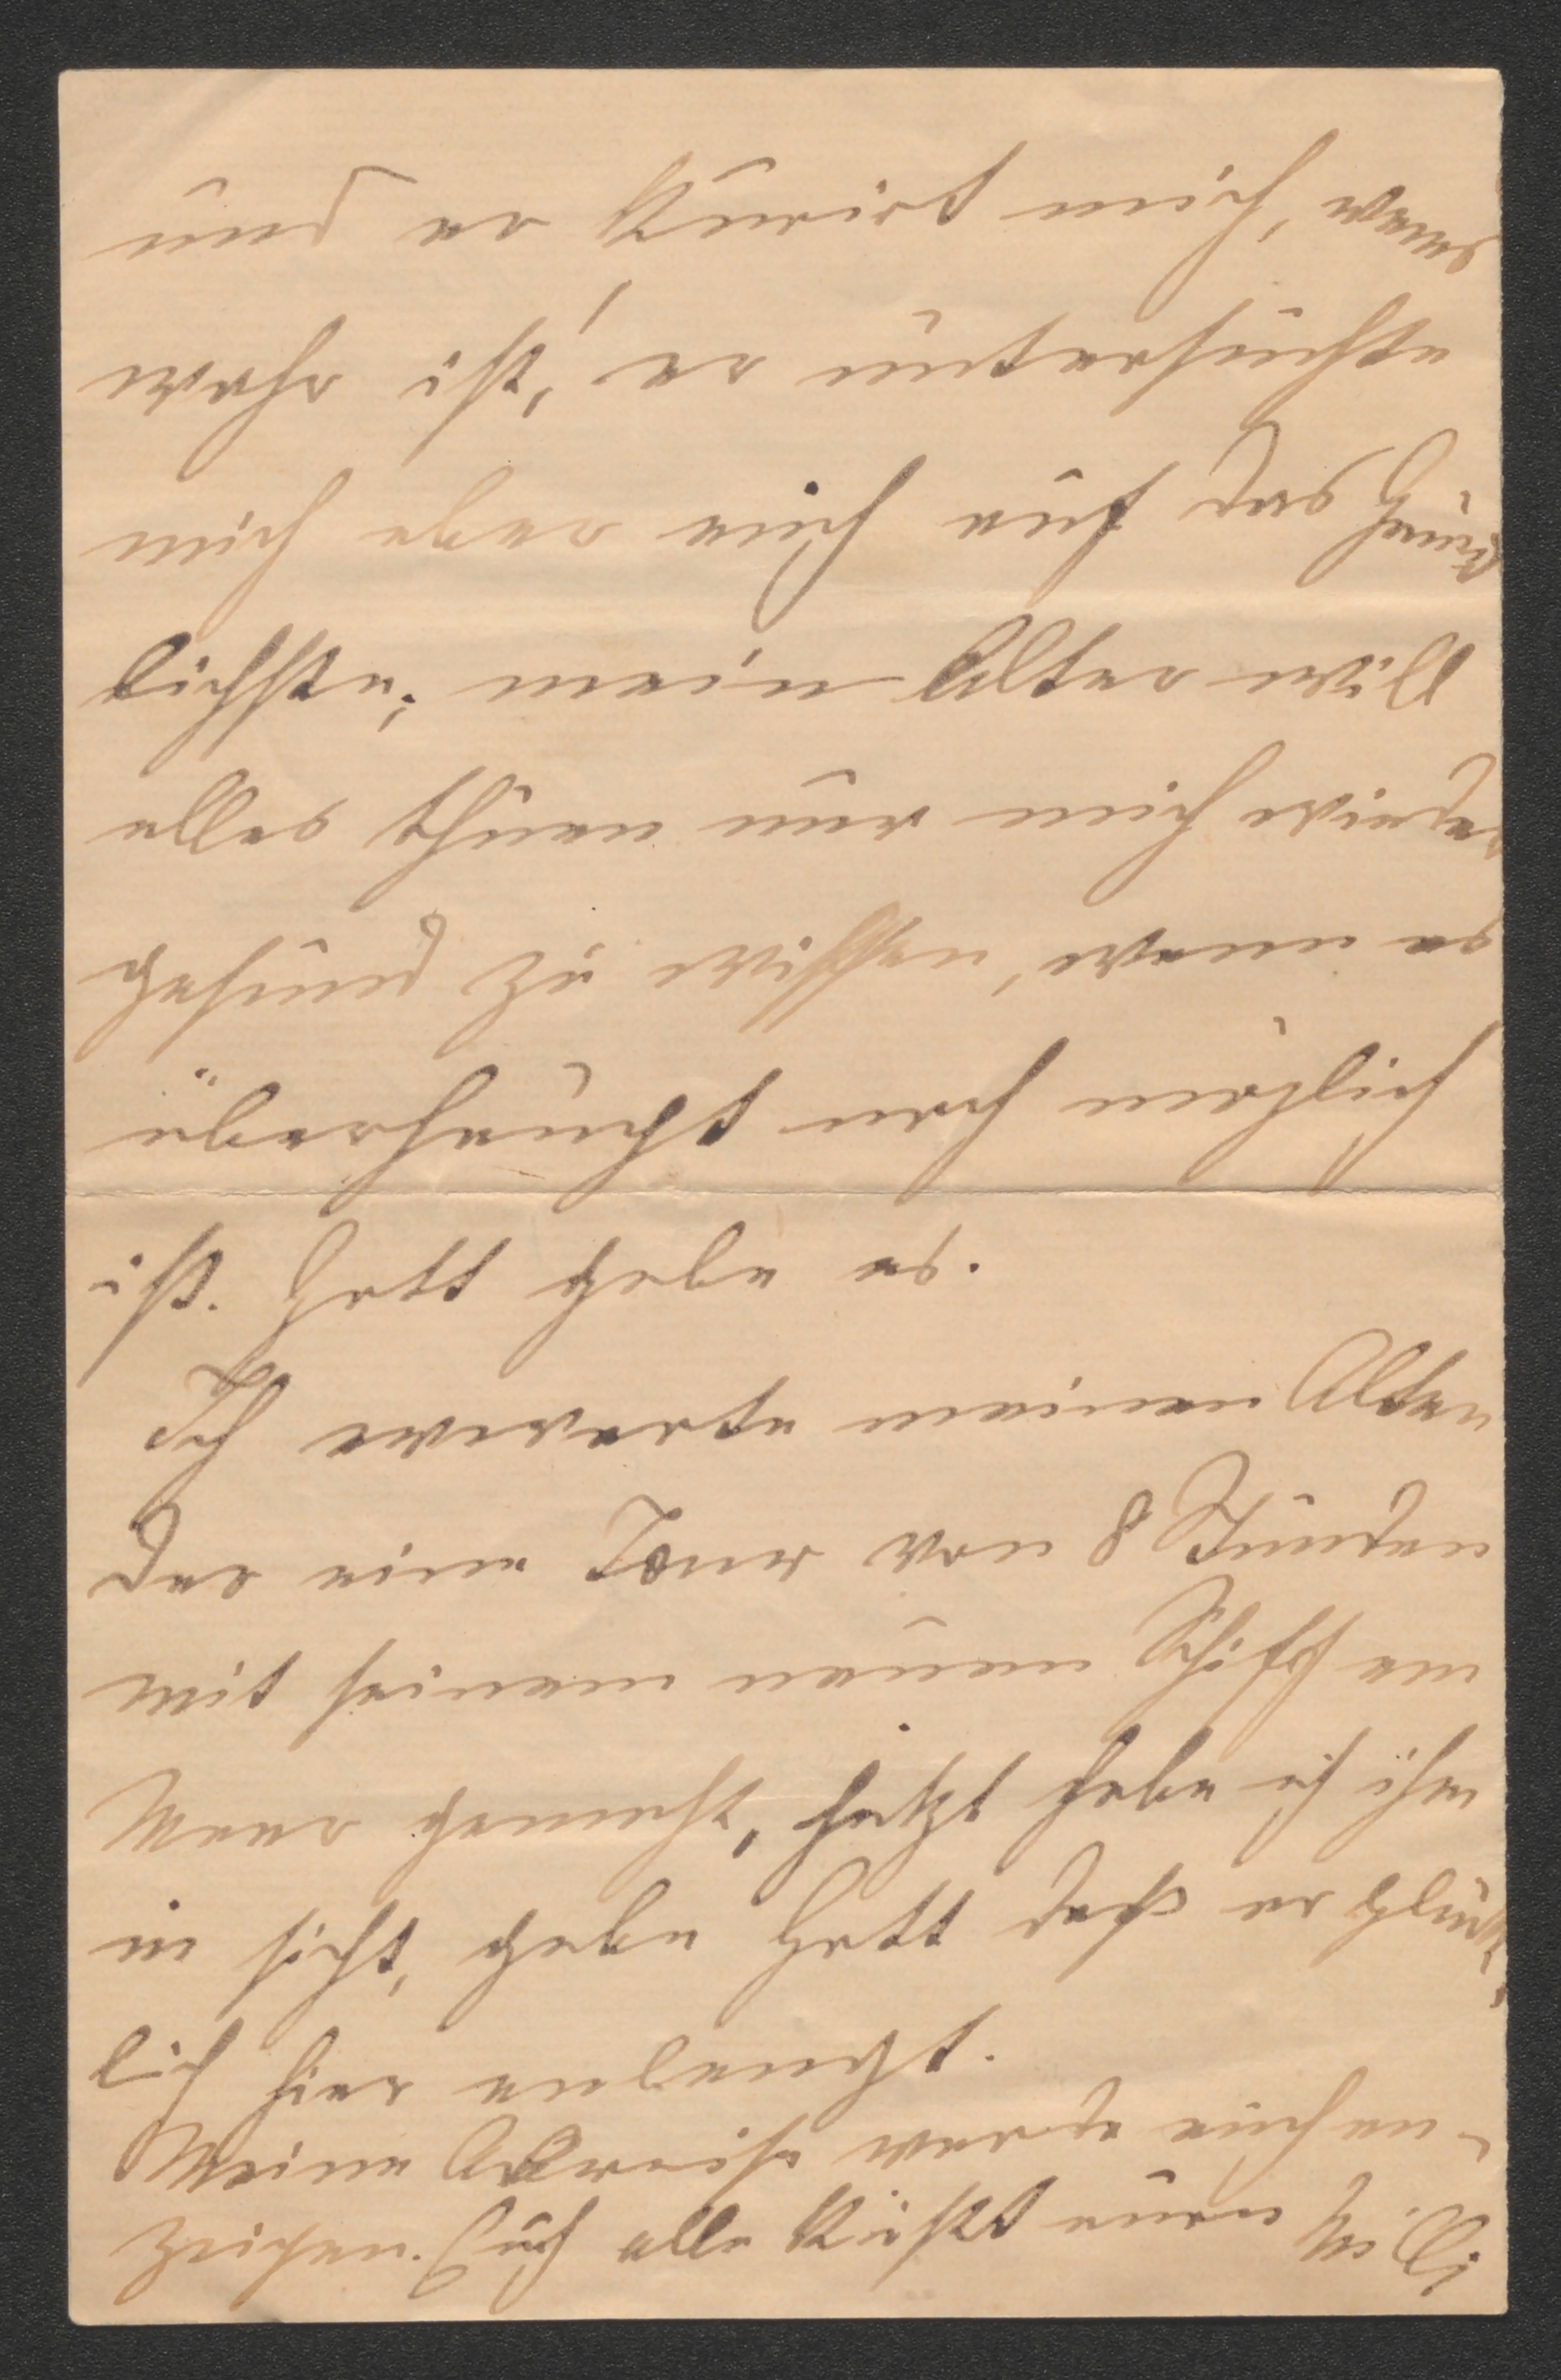 und er Kurirt mich, wenns
wahr ist, er untersuchte
mich aber auch auf das Gründ
lichste; mein Alter will
alles thuen nur mich wieder
gesund zu wissen, wenn es
überhaupt noch möglich
ist. Gott gebe es.
Ich erwarte meinen Alten
der eine Tour von 8 Stunden
mit seinem neuen Schiff am
Meer gemacht, jetzt habe ich ihn
in sicht, gebe Gott dass er glück
lich hier anlangt.
Meine Abreise werde euch an-
zeigen. Euch alle Küsst eure Milli